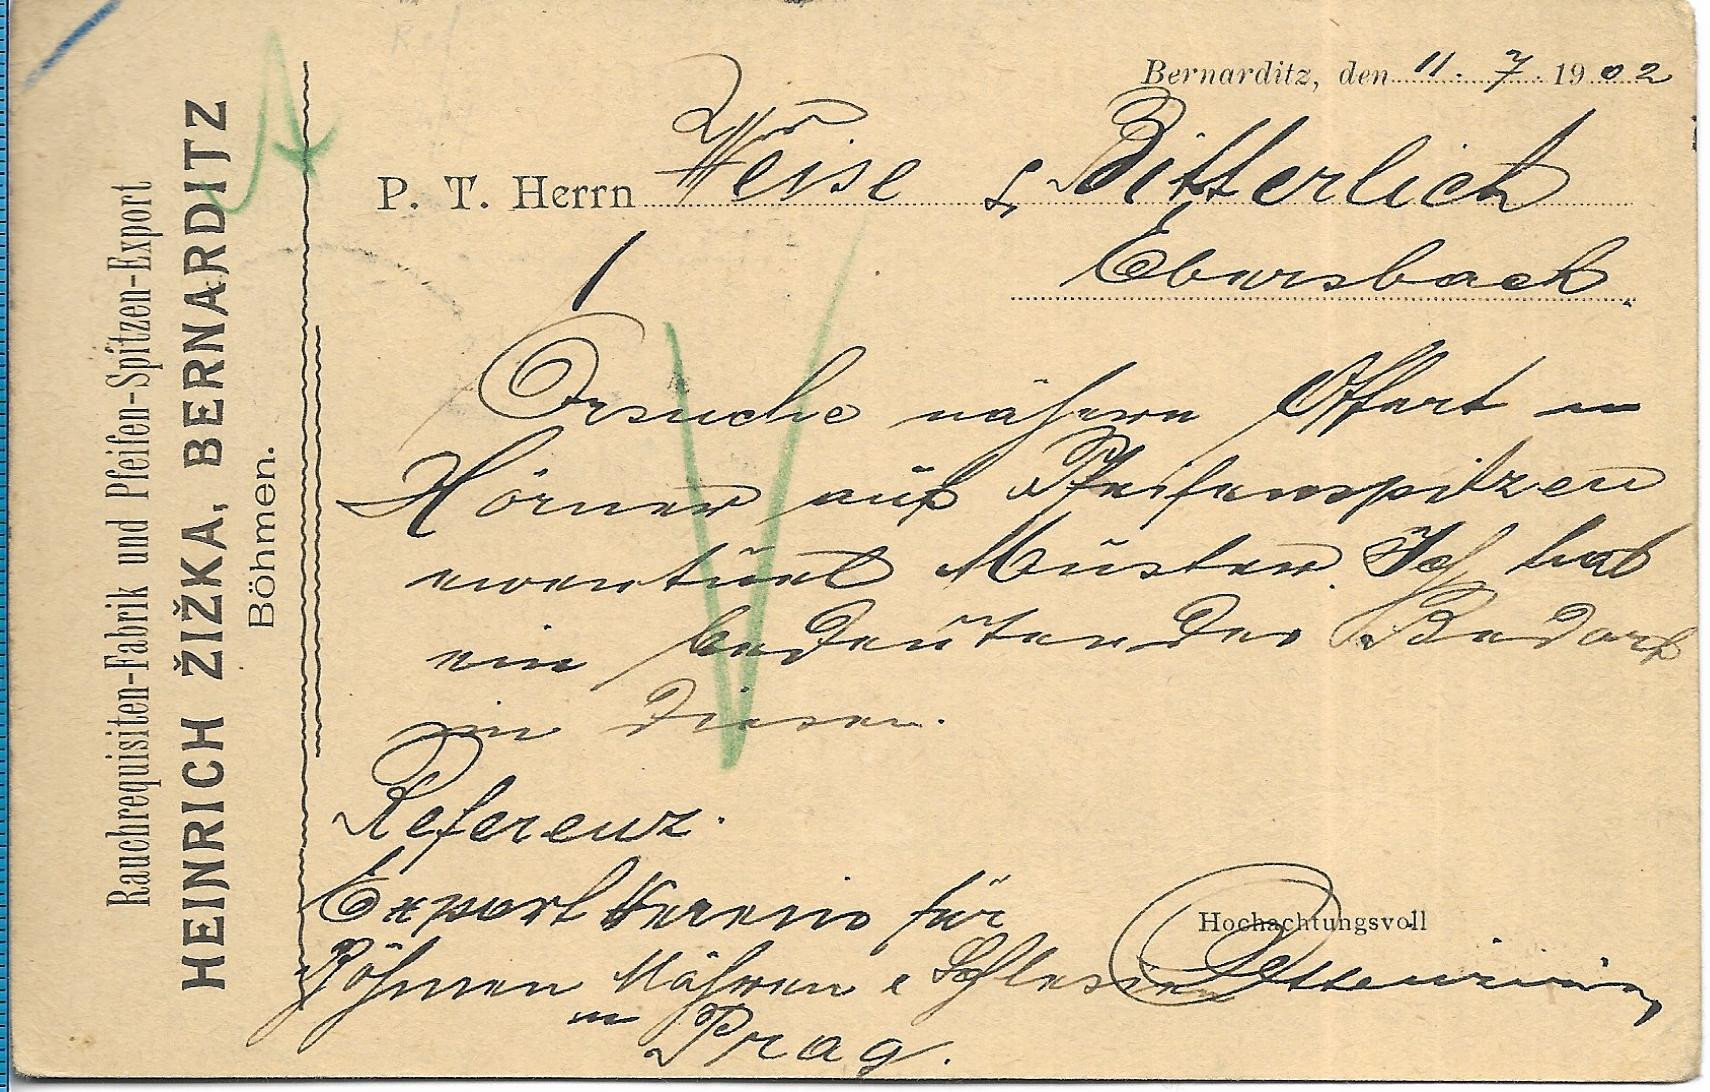 Rauchrequisiten-Fabrik und Pfeifen-Spitzen-Export
HEINRICH ŽIŽKA, BERNARDITZ
Böhmen.
Bernarditz, den 11. 7. 1902
P. T. Herrn Weise & Bitterlich
Ebersbach.
Ersuche nähere Offert in
Hörner auf Pfeifenspitzen
eventuel Muster. Ich hab
ein bedeutender Bedarf
in diesen.
Referenz.
Export Verein für
Böhmen Mähren & Schlesien
in Prag.
Hochachtungsvoll